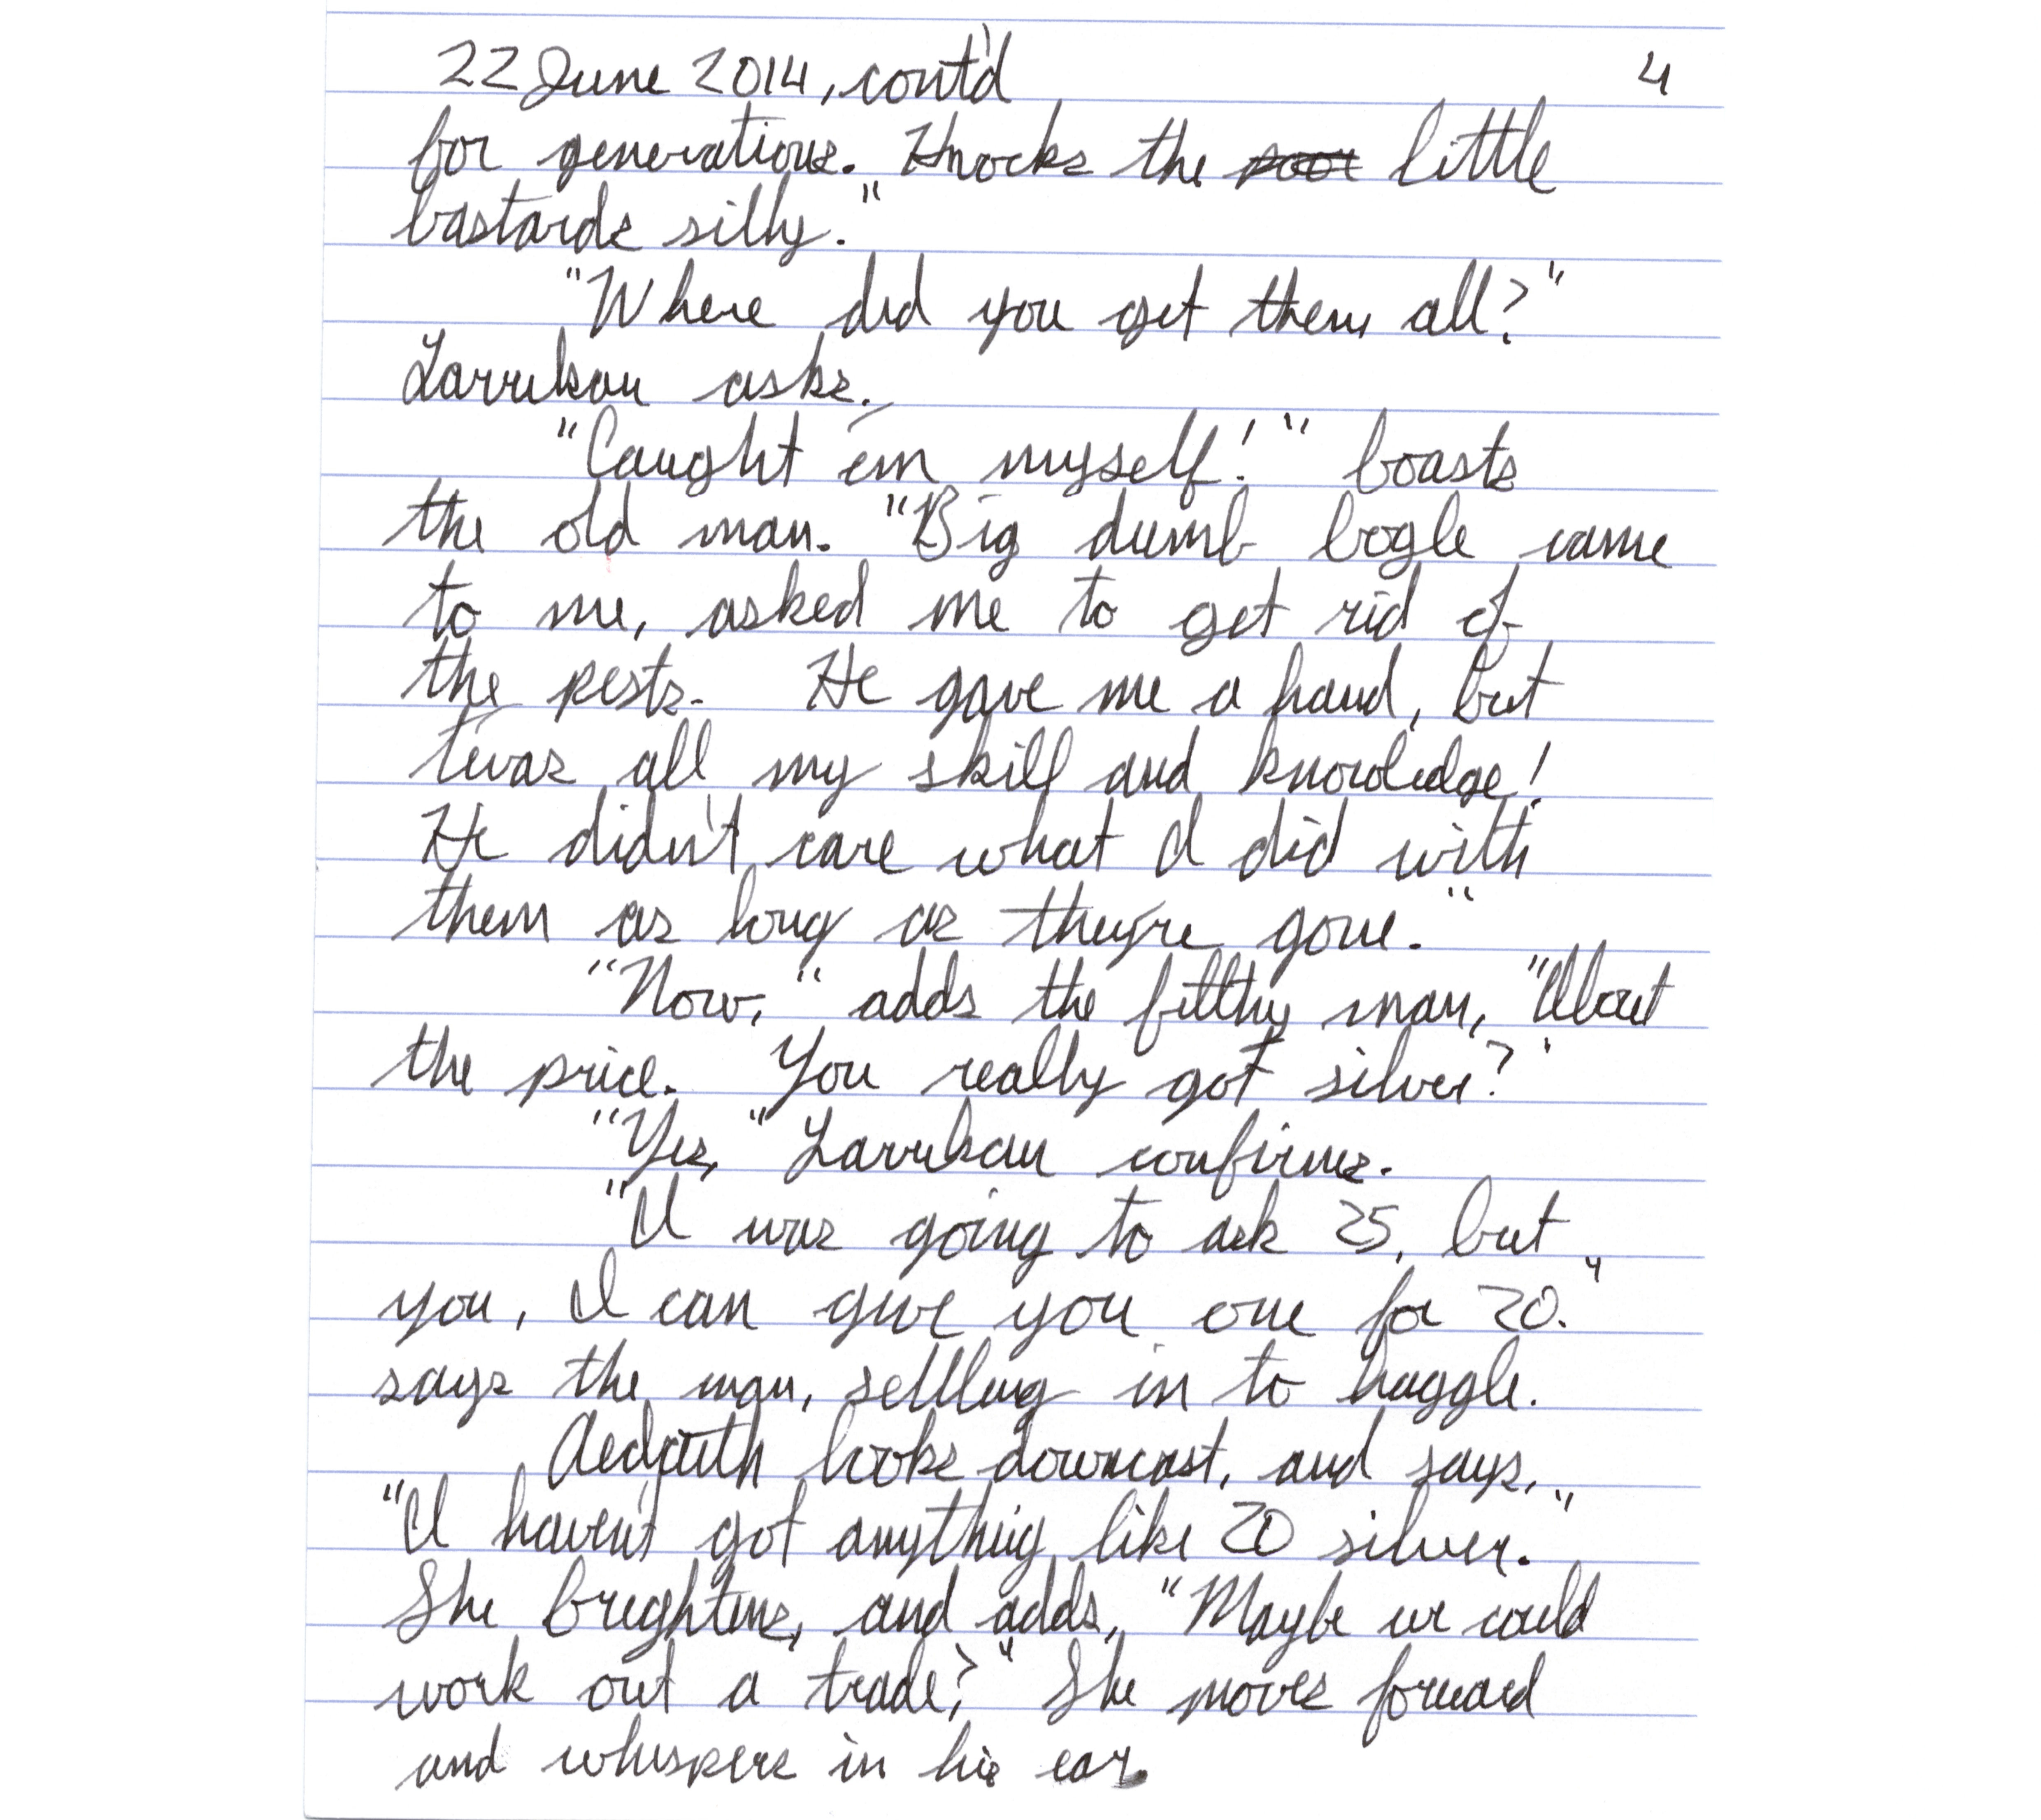 22 June 2014, cont'd 4
for generations. Knocks the little
bastards silly."
"Where did you get them all?"
Larrikan asks.
"Caught 'em myself!" boasts
the old man. "Big dumb bogle came
to me, asked me to get rid of
the pests. He gave me a hand, but
'twas all my skill and knowledge!
He didn't care what I did with
them as long as they're gone."
"Now," adds the filthy man, "About
the price. You really got silver?"
"Yes," Larrikan confirms.
"I was going to ask 25, but
you, I can give you one for 20."
says the man, settling in to haggle.
looks downcast, and says,
"I haven't got anything like 20 silver."
She brightens, and adds, "Maybe we could
work out a trade?" She moves forward
and whispers in his ear.